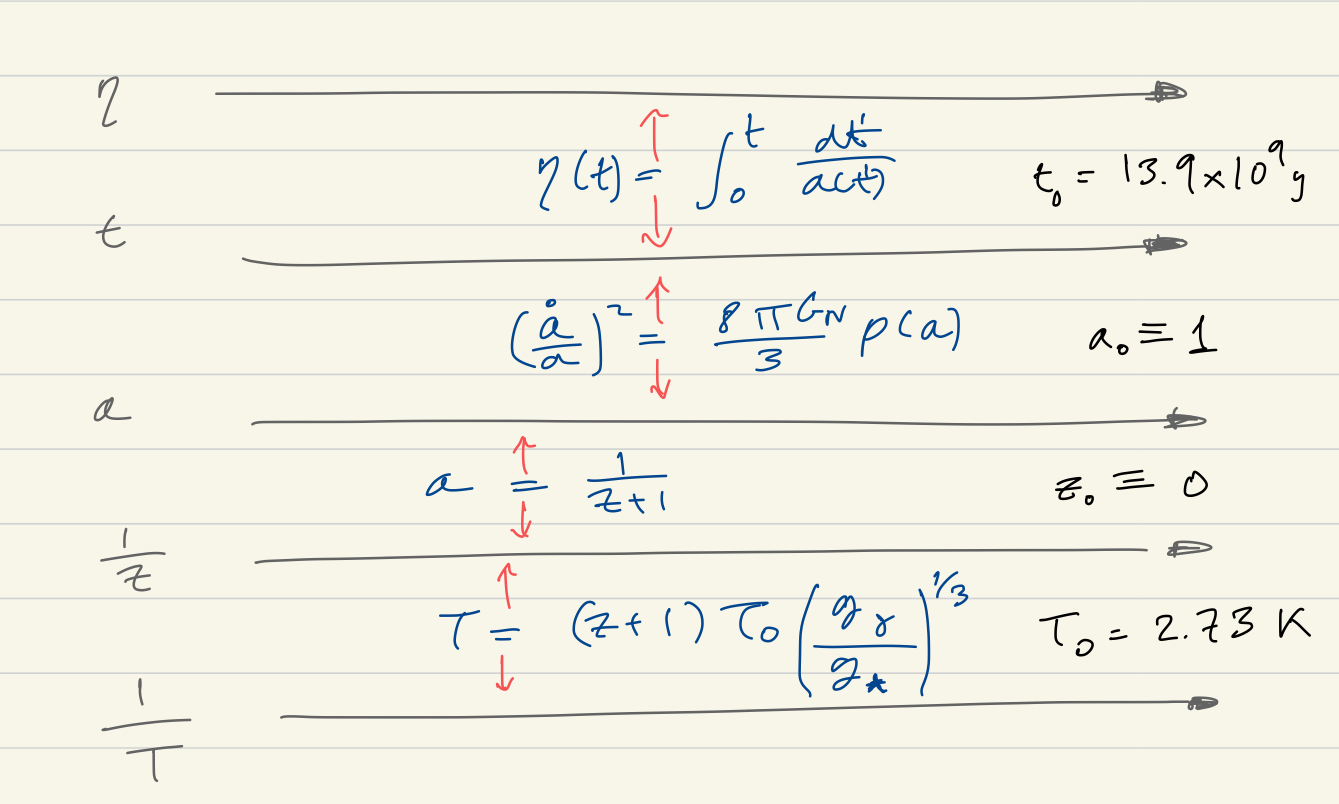 η
η(t) = ∫₀ᵗ dt'/a(t') t₀ = 13.9×10⁹ y
t
(ȧ/a)² = 8πG_N/3 ρ(a) a₀ ≡ 1
a
a = 1/(z+1) z₀ ≡ 0
1/z
T = (z+1) T₀ (g_γ/g_★)^{1/3} T₀ = 2.73 K
1/T